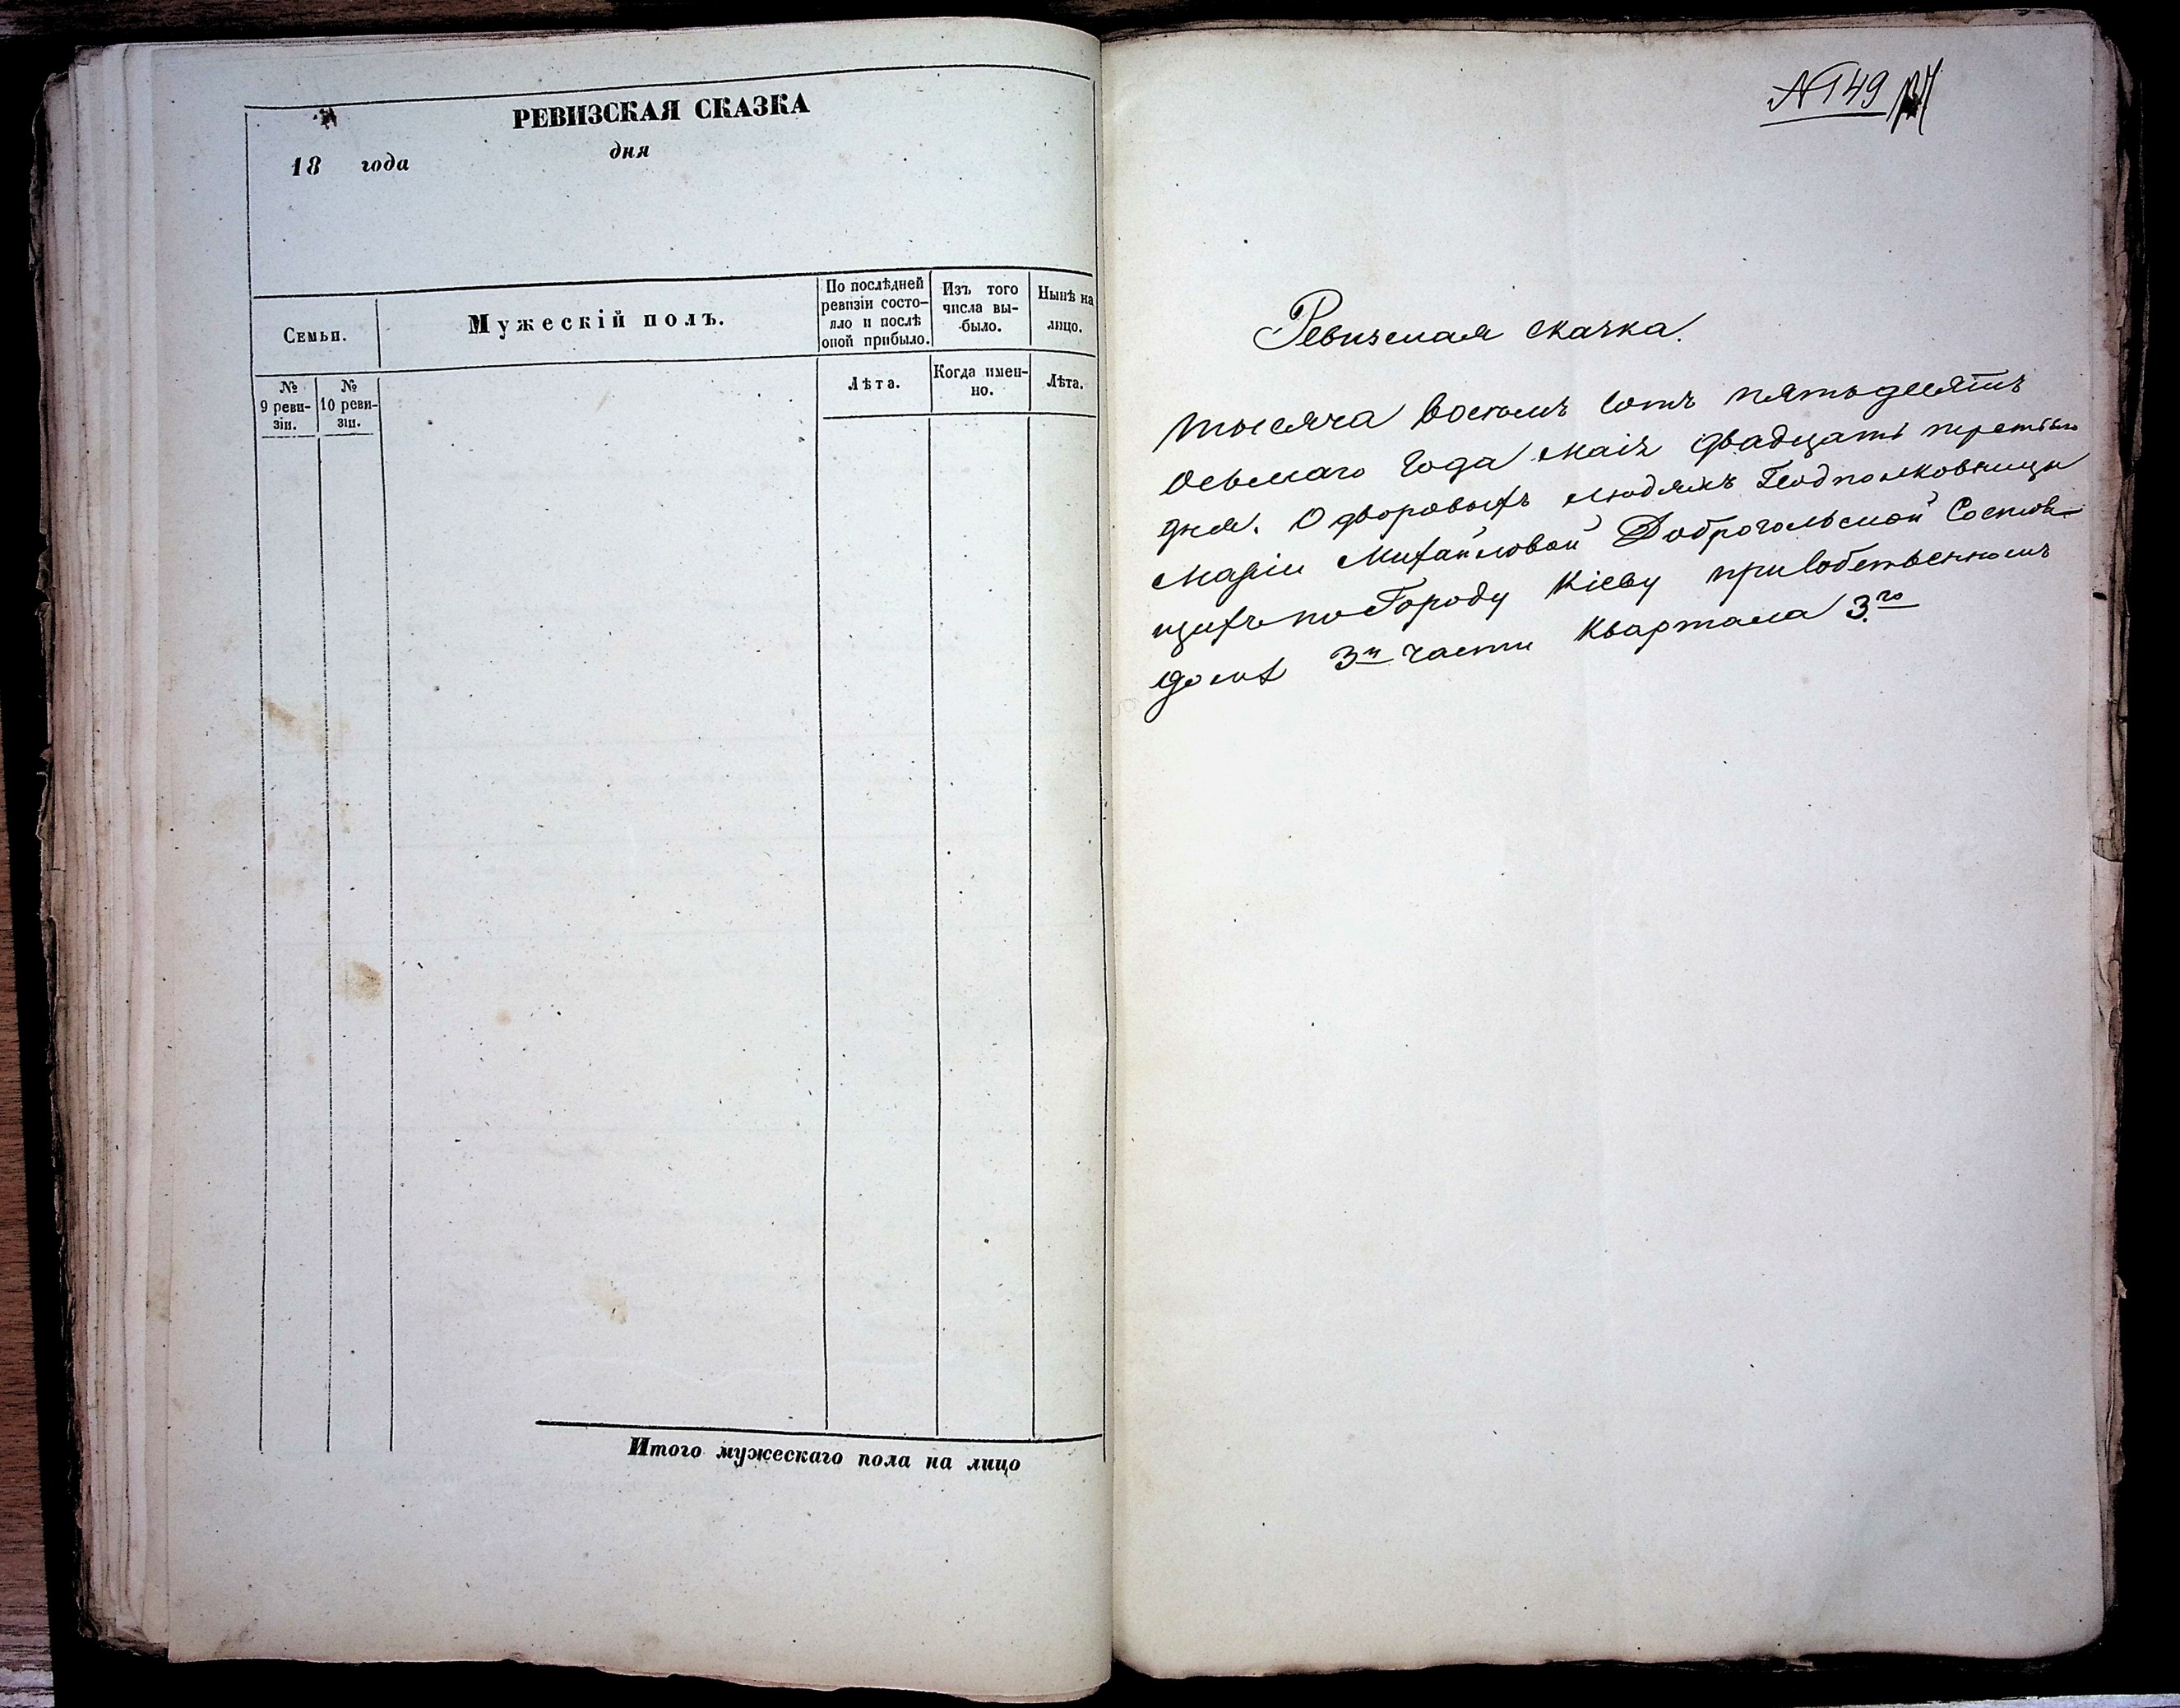 РЕВИЗСКАЯ СКАЗКА
18 года дня
Семьи.
Мужескій полъ.
По послѣдней
ревизіи состо-
яло и послѣ
оной прибыло.
Изъ того
числа вы-
было.
Нынѣ на
лицо.
№
9 реви-
зіи.
№
10 реви-
зіи.
Лѣта.
Когда имен-
но.
Лѣта.
Итого мужескаго пола на лицо
№ 149
Ревизская сказка.
тысяча восемъ сотъ пятьдесятъ
осьмаго года маія двадцать третьяго
дня. О дворовыхъ людяхъ Подполковницы
Маріи Михайловой Доброгольской Состоя-
щихъ по Городу Кіеву при собственномъ
домѣ 3й части Квартала 3.го